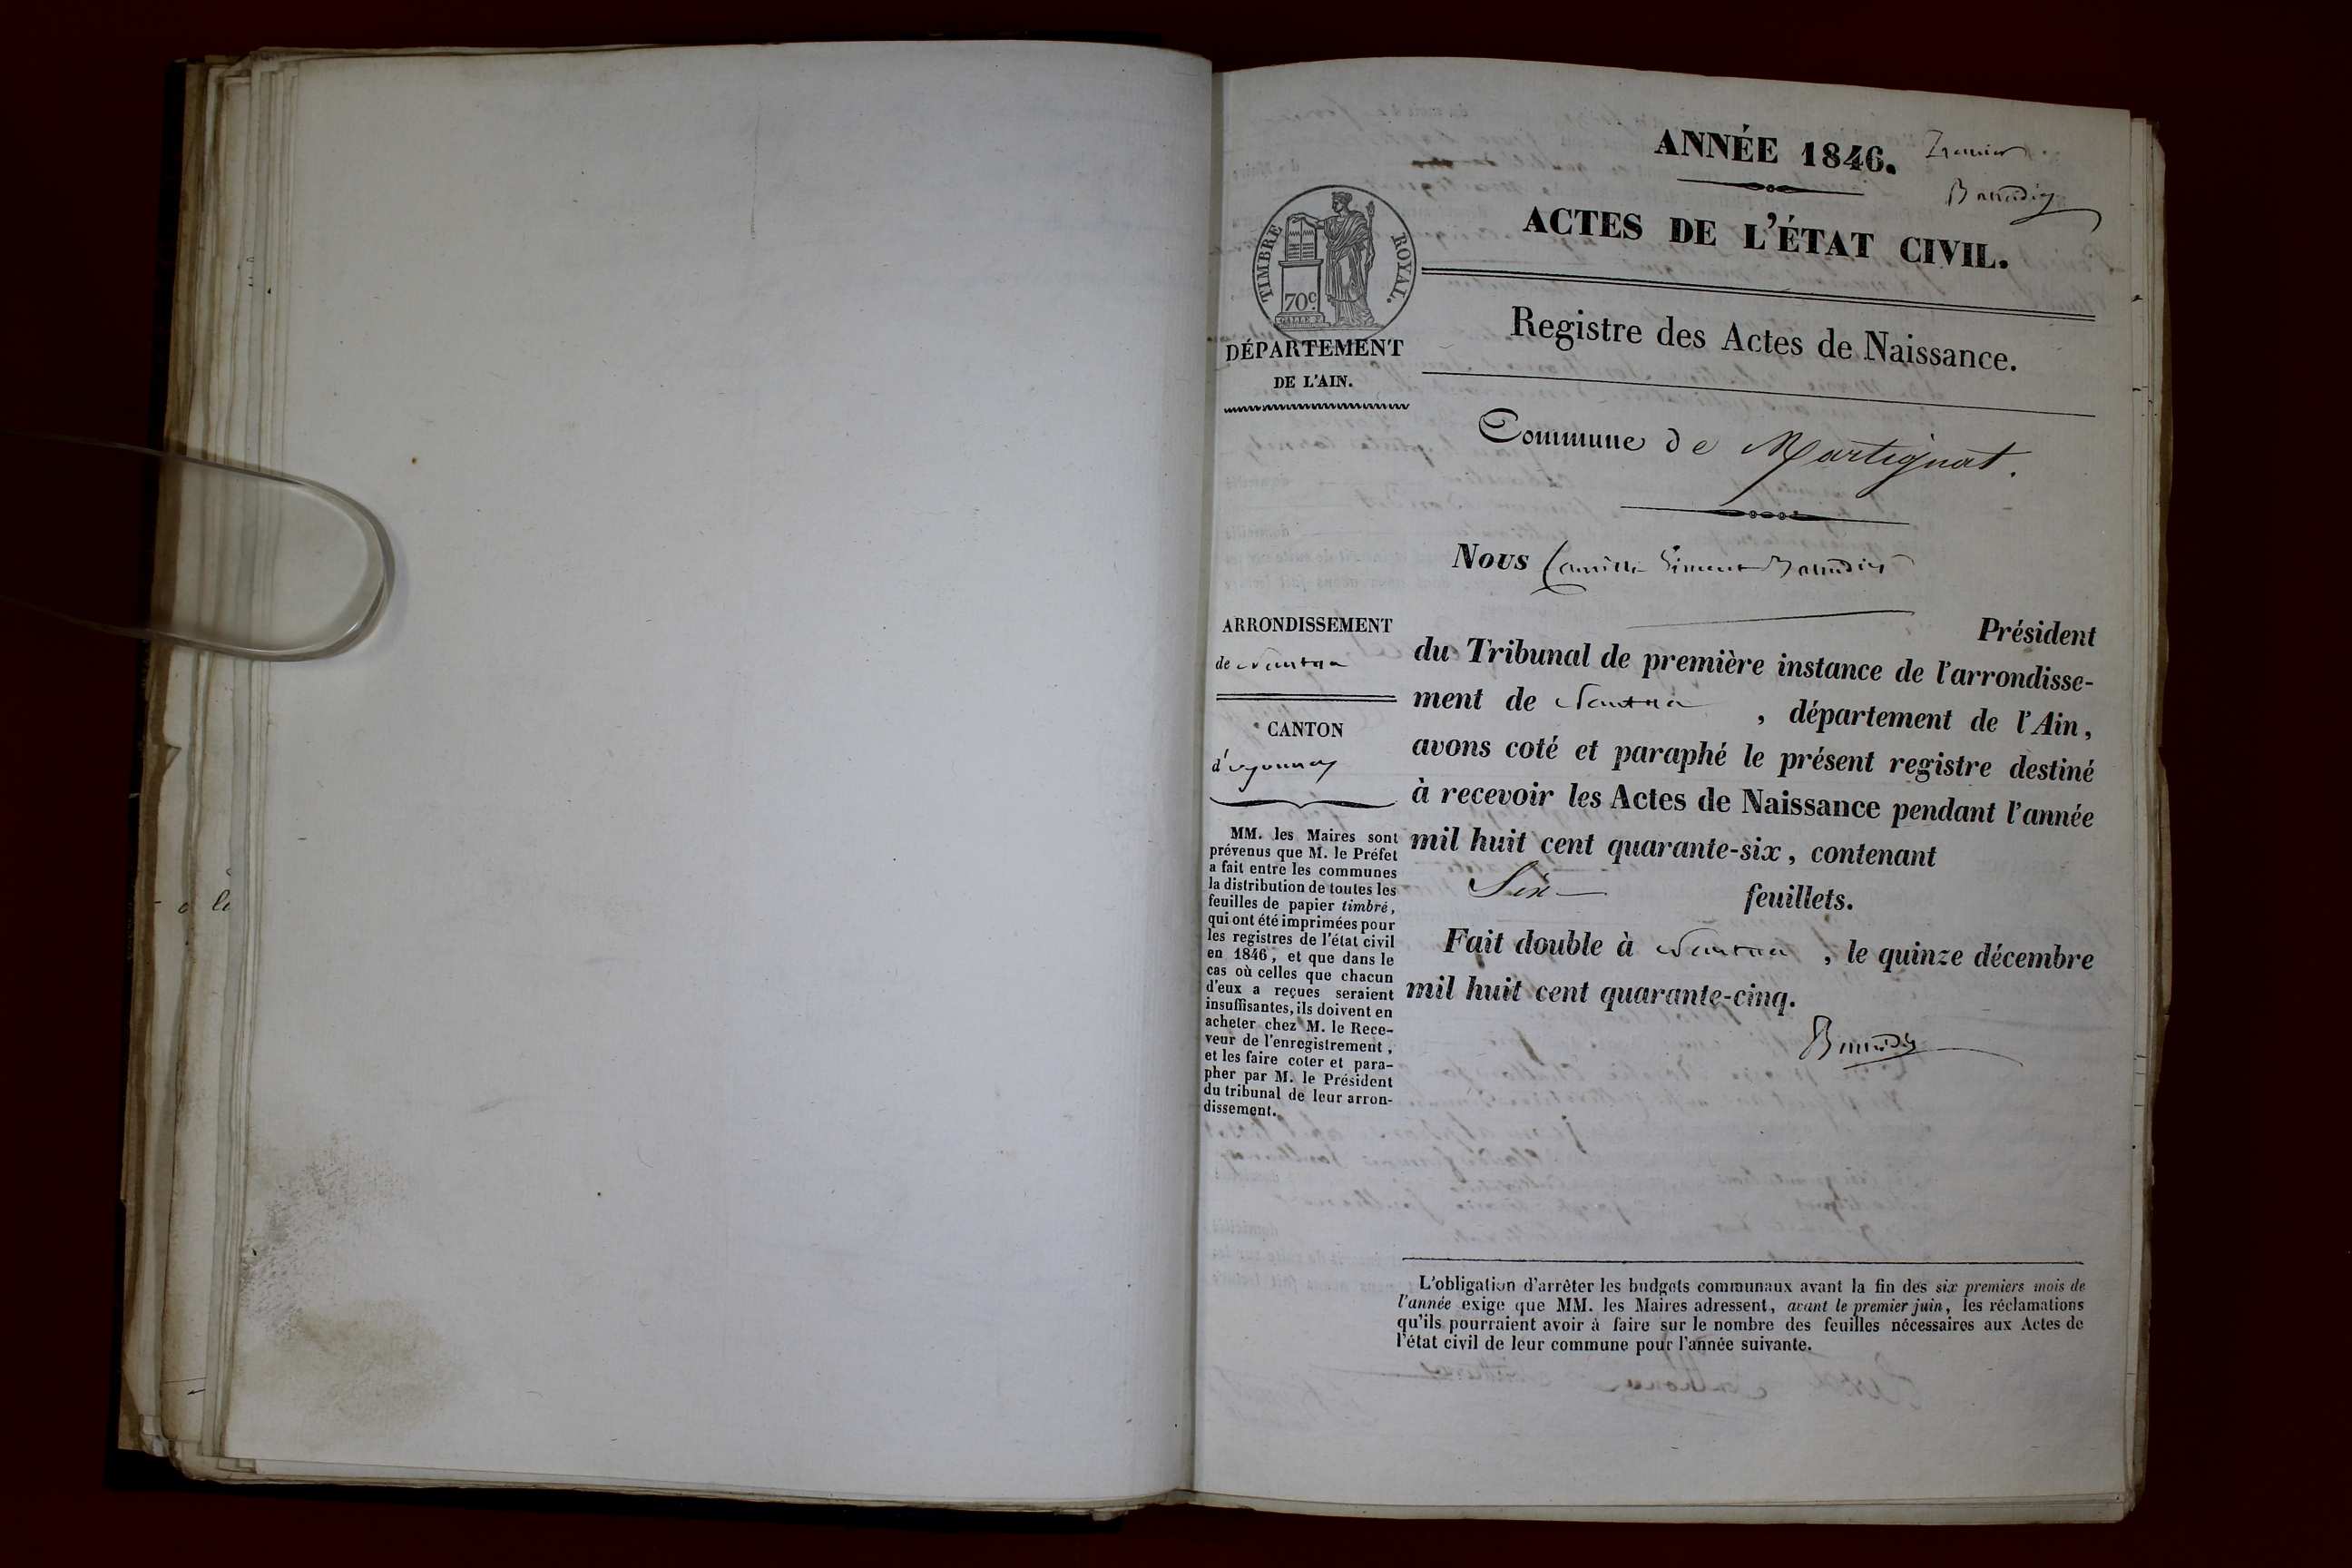 ANNÉE 1846.
ACTES DE L'ÉTAT CIVIL.
TIMBRE ROYAL.
70c
GALLE F.
DÉPARTEMENT
DE L'AIN.
Registre des Actes de Naissance.
Commune de Martignat.
Nous Camille
Président
du Tribunal de première instance de l'arrondisse-
ment de Nantua , département de l'Ain,
avons coté et paraphé le présent registre destiné
à recevoir les Actes de Naissance pendant l'année
mil huit cent quarante-six, contenant
Six feuillets.
Fait double à Nantua , le quinze décembre
mil huit cent quarante-cinq.
ARRONDISSEMENT
de Nantua
CANTON
d'oyonnax
MM. les Maires sont
prévenus que M. le Préfet
a fait entre les communes
la distribution de toutes les
feuilles de papier timbré,
qui ont été imprimées pour
les registres de l'état civil
en 1846, et que dans le
cas où celles que chacun
d'eux a reçues seraient
insuffisantes, ils doivent en
acheter chez M. le Rece-
veur de l'enregistrement,
et les faire coter et para-
pher par M. le Président
du tribunal de leur arron-
dissement.
L'obligation d'arrêter les budgets communaux avant la fin des six premiers mois de
l'année exige que MM. les Maires adressent, avant le premier juin, les réclamations
qu'ils pourraient avoir à faire sur le nombre des feuilles nécessaires aux Actes de
l'état civil de leur commune pour l'année suivante.